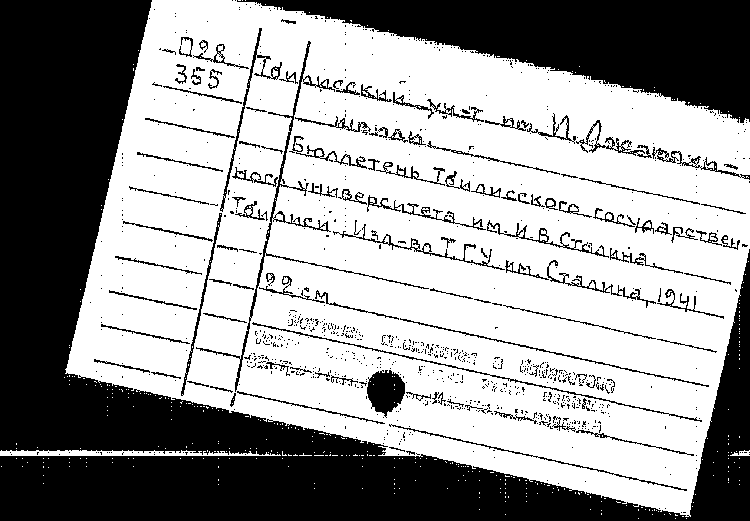 П28
355
Тбилисский ун-т им. И. Джавахи-
швили.
Бюллетень Тбилисского государствен-
ного университета им. И. В. Сталина.
Тбилиси, Изд-во ТГУ им. Сталина, 1941
22 см.